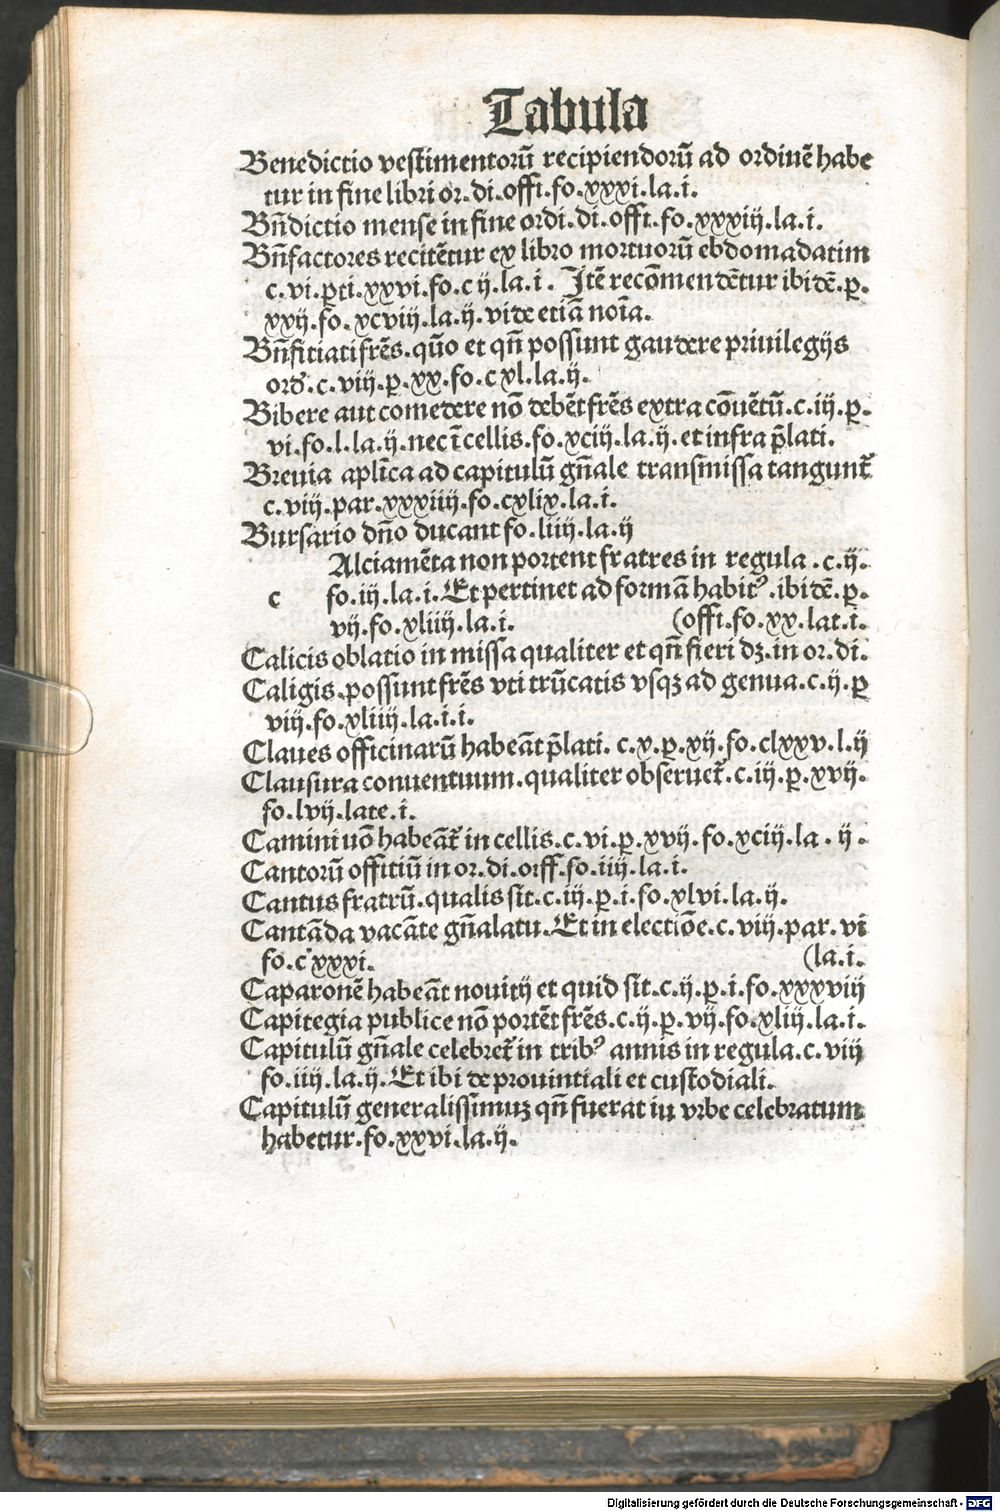 Tabula
Benedictio vestimentorū recipiendorū ad ordinē habe
tur in fine libri or. di. offi. fo. xxxi. la. i.
Bn̄dictio mense in fine ordi. di. offi. fo. xxxiij. la. i.
Bn̄factores recitētur ex libro mortuorū ebdomadatim
c. vi. ꝑti. xxvi. fo. c ij. la. i. Itē recōmendētur ibidē. ꝑ.
xxij. fo. xcviij. la. ij. vide etiā noīa.
Bn̄fitiati frēs. qūo et qn̄ possunt gaudere priuilegijs
ord̄. c. viij. ꝑ. xx. fo. c xl. la. ij.
Bibere aut comedere nō debēt frēs extra cōuētū. c. iij. ꝑ.
vi. fo. l. la. ij. nec ī cellis. fo. xciij. la. ij. et infra p̄lati.
Breuia aplīca ad capitulū gn̄ale transmissa tangunt᷑
c. viij. par. xxxiiij. fo. cxlix. la. i.
Bursario dn̄o ducant fo. liiij. la. ij
Alciamēta non portent fratres in regula . c. ij.
c fo. iij. la. i. Et pertinet ad formā habitꝰ . ibidē. ꝑ.
vij. fo. xliiij. la. i. (offi. fo. xx. lat. i.
Calicis oblatio in missa qualiter et qn̄ fieri dꝫ. in or. di.
Caligis. possunt frēs vti trūcatis vsqꝫ ad genua. c. ij. ꝑ
viij. fo. xliiij. la. i. i.
Claues officinarū habeāt p̄lati. c. x. ꝑ. xij. fo. clxxv. l. ij
Clausura conuentuum. qualiter obseruet᷑. c. iij. ꝑ. xvij.
fo. lvij. late. i.
Camini uō habeāt᷑ in cellis. c. vi. ꝑ. xvij. fo. xciij. la . ij .
Cantorū offitiū in or. di. oiff. fo. iiij. la. i.
Cantus fratrū. qualis sit. c. iij. ꝑ. i. fo. xlvi. la. ij.
Cantāda vacāte gn̄alatu. Et in electiōe. c. viij. par. vi
fo. c xxxi. (la. i.
Caparonē habeāt nouitij et quid sit. c. ij. ꝑ. i. fo. xxxviij
Capitegia publice nō portēt frēs. c. ij. ꝑ. vij. fo. xliij. la. i.
Capitulū gn̄ale celebret᷑ in tribꝰ annis in regula. c. viij
fo. iij. la. ij. Et ibi de prouintiali et custodiali.
Capitulū generalissimuꝫ qn̄ fuerat iu vrbe celebratum
habetur. fo. xxvi. la. ij.
Digitalisierung gefördert durch die Deutsche Forschungsgemeinschaft - DFG